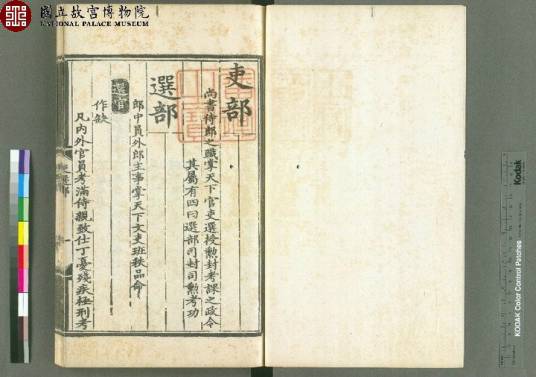 國立故宮博物院
NATIONAL PALACE MUSEUM
吏部
尚書侍郎之職掌天下官吏選授勲封考課之政令
其屬有四曰選部司封司勲考功
選部
郎中員外郎主事掌天下文吏班秩品命
選官
作缺
凡內外官員考滿侍親致仕丁憂殘疾極刑考
Kodak
KODAK Color Control Patches